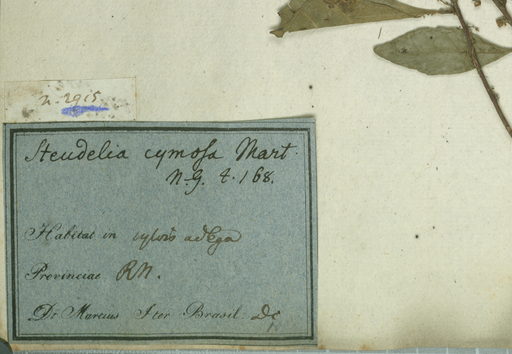 n. 2915
Steudelia cymosa Mart.
N. G. t. 168.
Habitat in sylvis ad Ega
Provinciae RN.
Dr Martius Iter Brasil. Dc